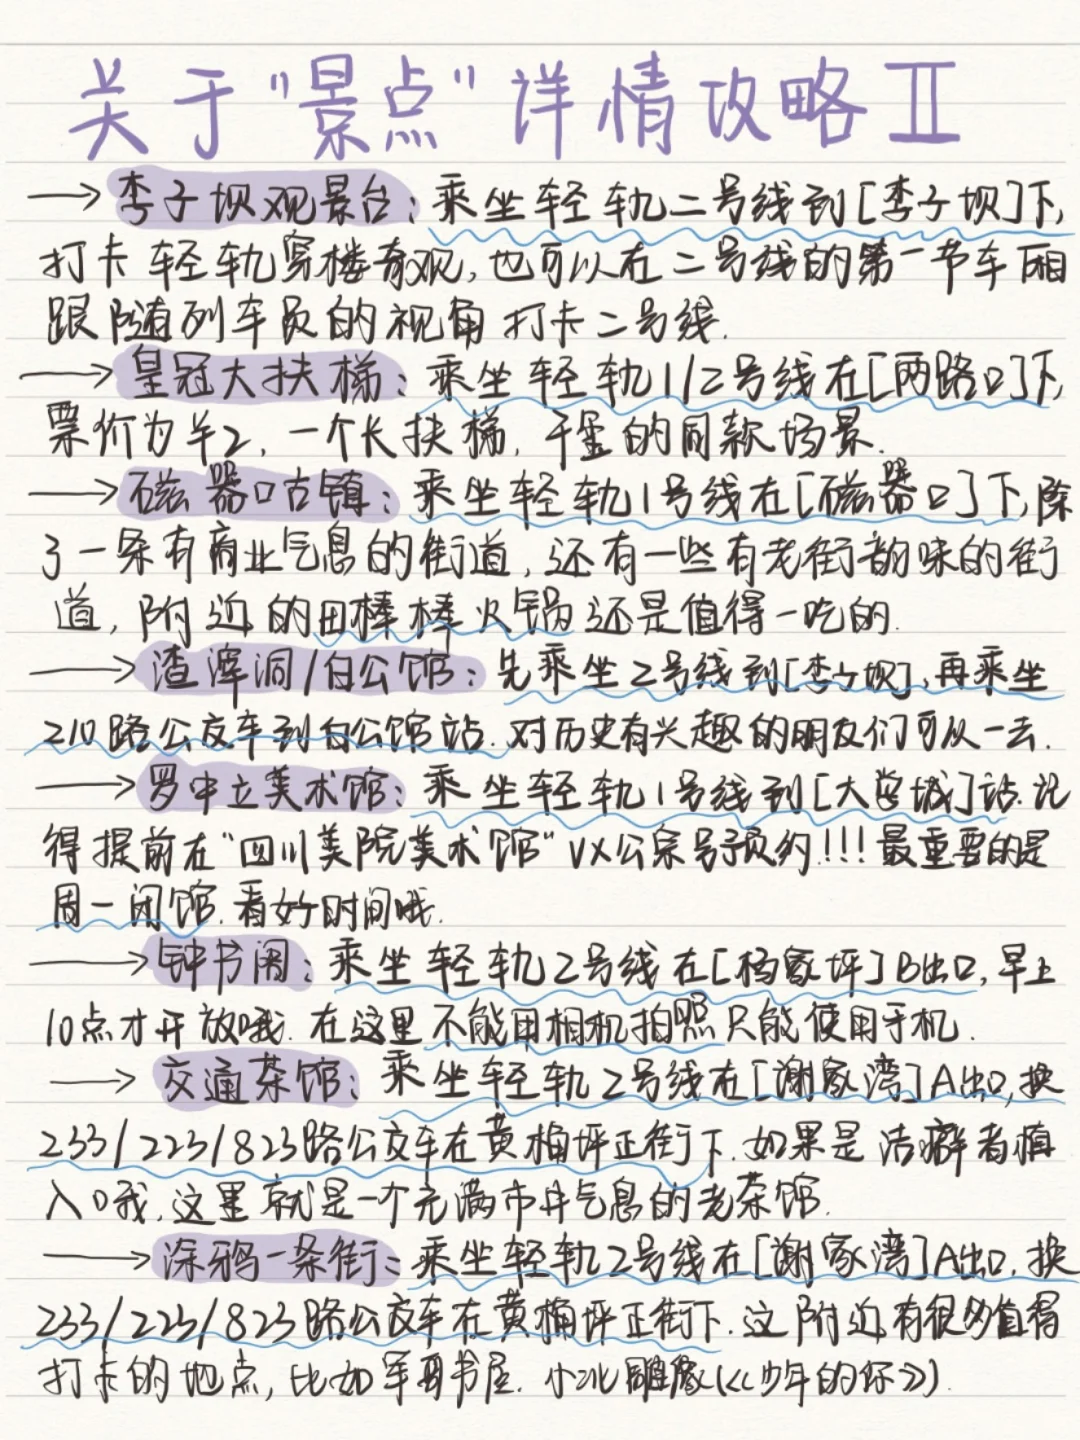 关于"景点"详情攻略Ⅱ
→李子坝观景台:乘坐轻轨二号线到[李子坝]下,
打卡轻轨穿楼奇观,也可以在二号线的第一节车厢
跟随列车员的视角打卡二号线.
→皇冠大扶梯:乘坐轻轨1/2号线在[两路口]下,
票价为¥2,一个长扶梯,千玺的同款场景.
→磁器口古镇:乘坐轻轨1号线在[磁器口]下,除
了一条有商业气息的街道,还有一些有老街韵味的街
道,附近的田棒棒火锅还是值得一吃的.
→渣滓洞/白公馆:先乘坐2号线到[李子坝],再乘坐
210路公交车到白公馆站.对历史有兴趣的朋友们可以一去.
→罗中立美术馆:乘坐轻轨1号线到[大学城]站.记
得提前在"四川美院美术馆"VX公众号预约!!!最重要的是
周一闭馆.看好时间哦.
→钟书阁:乘坐轻轨2号线在[杨家坪]B出口,早上
10点才开放哦.在这里不能用相机拍照只能使用手机.
→交通茶馆:乘坐轻轨2号线在[谢家湾]A出口,换
233/223/823路公交车在黄桷坪正街下.如果是洁癖者慎
入哦,这里就是一个充满市井气息的老茶馆.
→涂鸦一条街:乘坐轻轨2号线在[谢家湾]A出口,换
233/223/823路公交车在黄桷坪正街下.这附近有很多值得
打卡的地点,比如军哥书屋.小北雕像(《少年的你》).